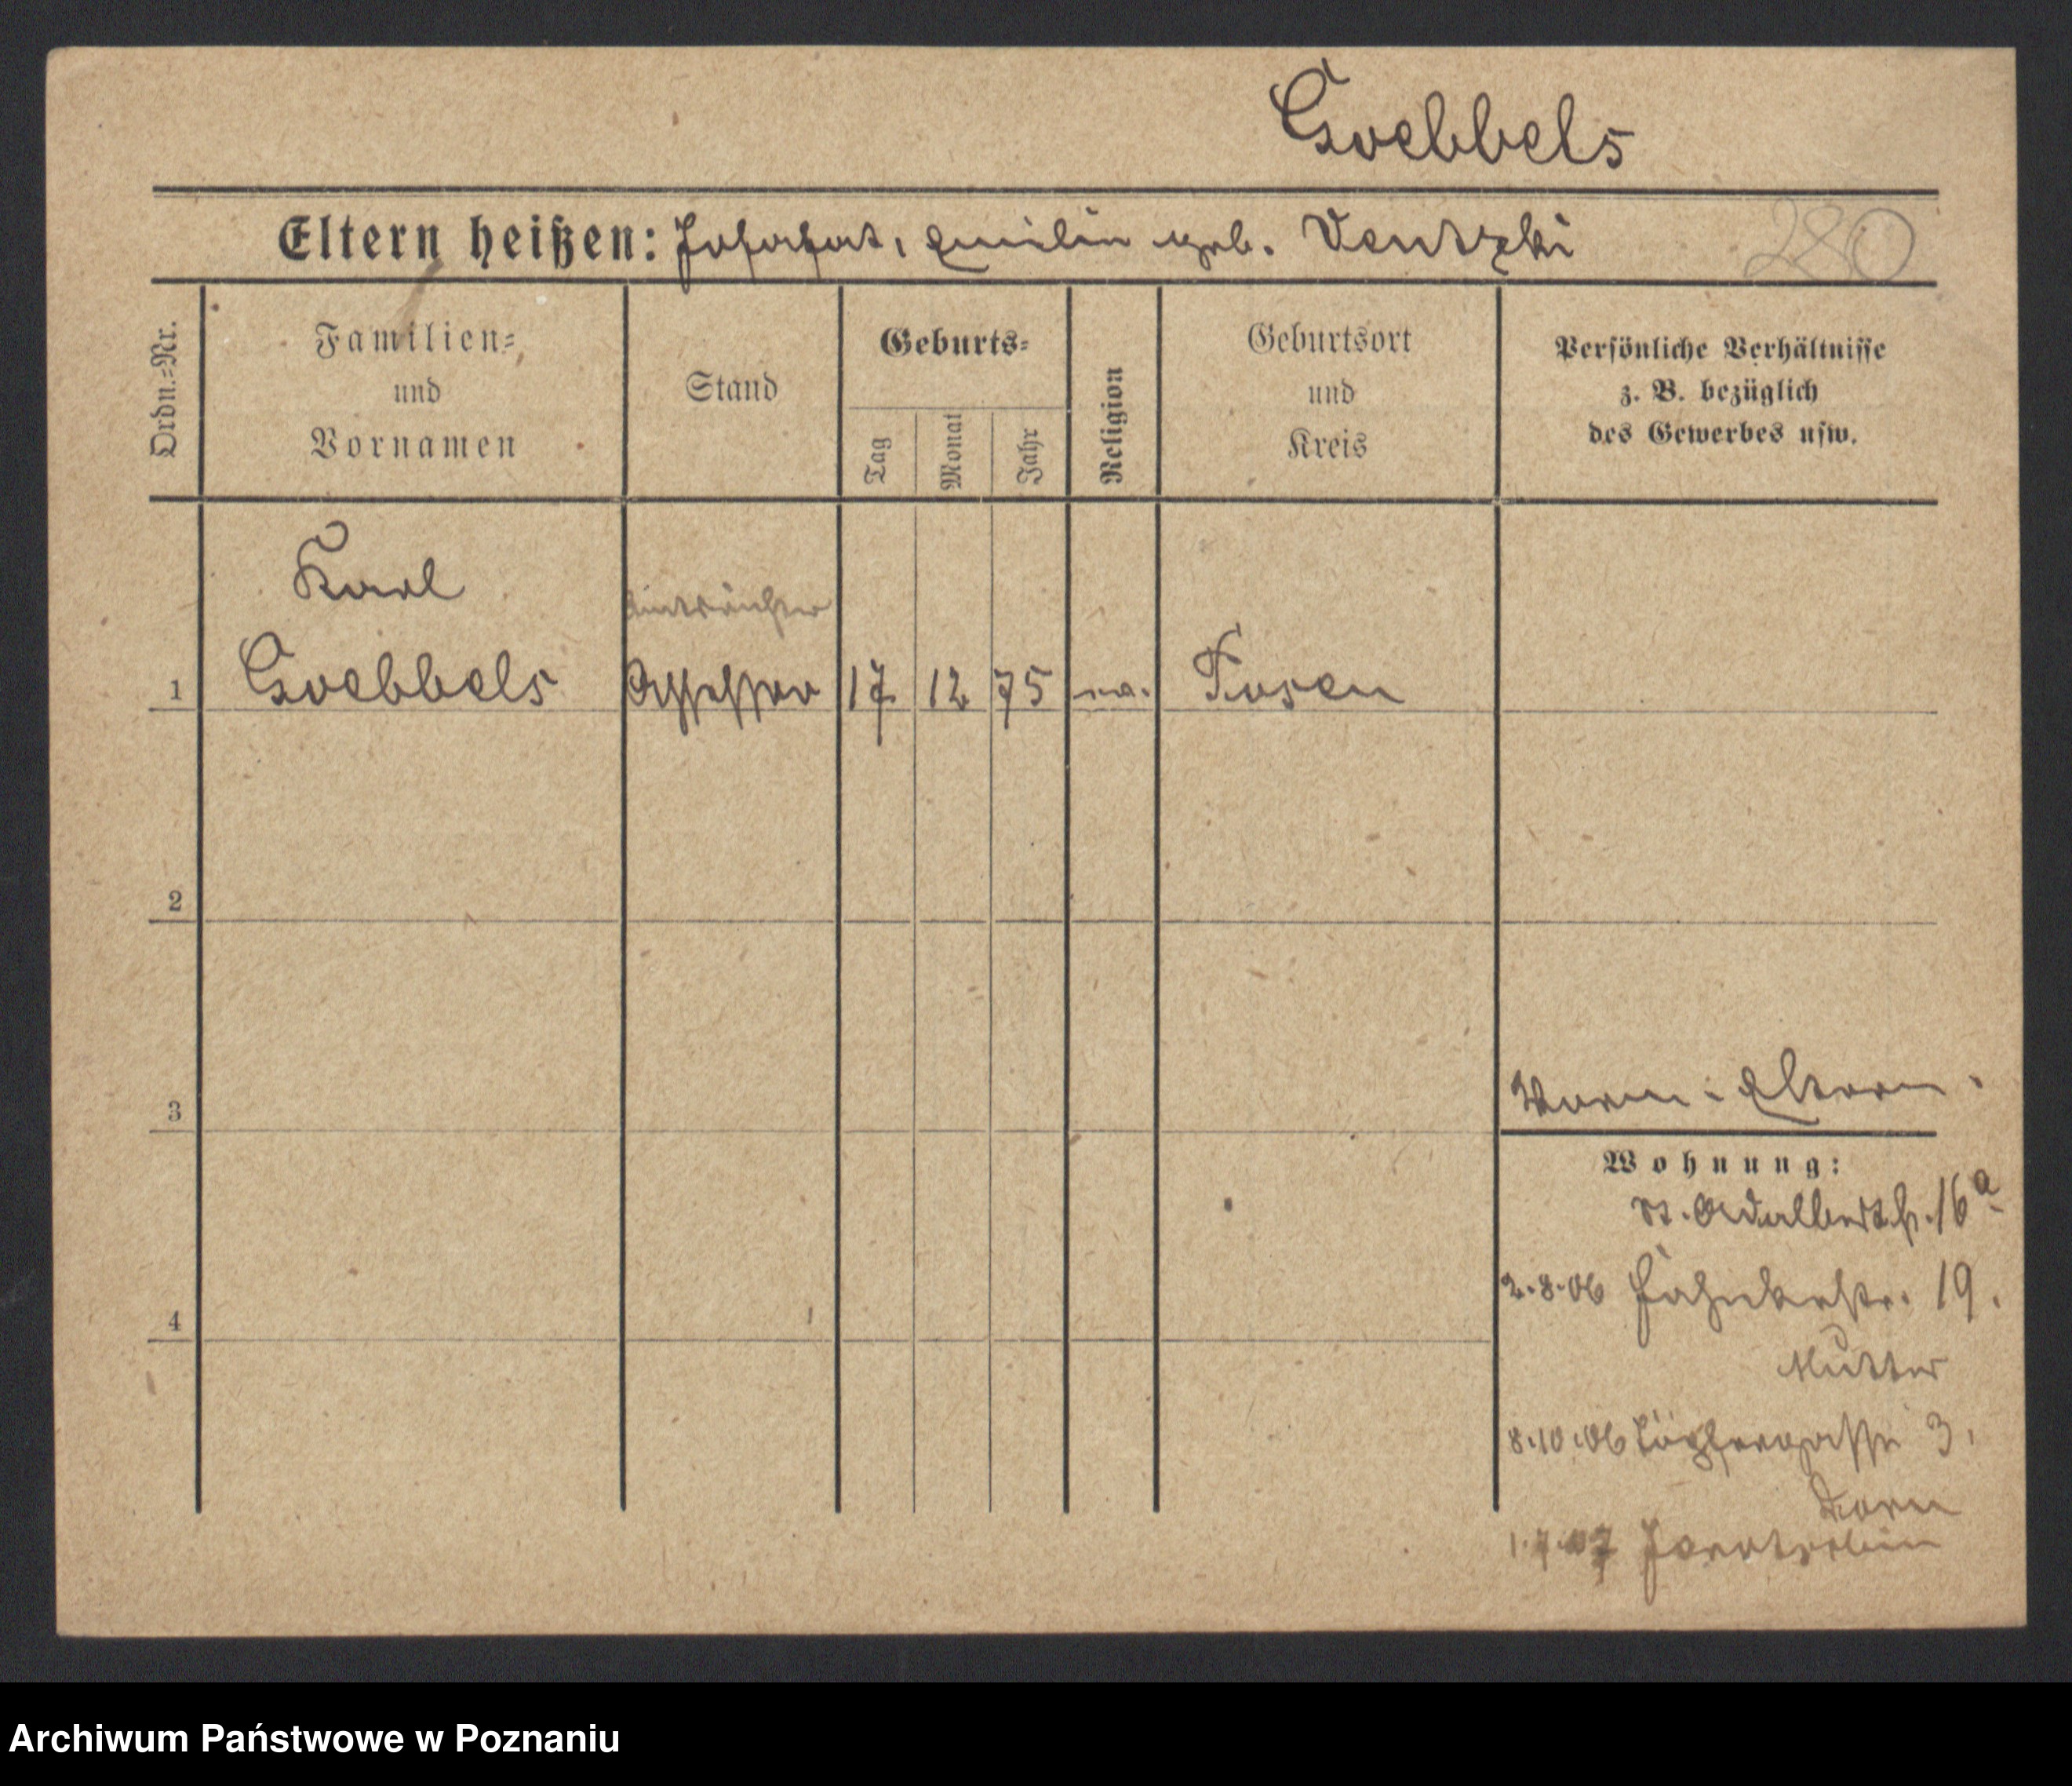 Goebbels
Eltern heißen: Josafat, Emilie geb. Ventzki
280
Ordn.-Nr.
Familien-
und
Vornamen
Stand
Geburts-
Tag
Monat
Jahr
Religion
Geburtsort
und
Kreis
Persönliche Verhältnisse
z. B. bezüglich
des Gewerbes usw.
Karl
Amtsrichter
1 Goebbels Assessor 17 12 75 ev. Posen
2
3
4
Vorm: Eltern.
Wohnung:
St. Adalbertstr. 16a
2.8.06 19.
Mutter
8.10.06 Töpfergasse 3,
1.7.07
Archiwum Państwowe w Poznaniu